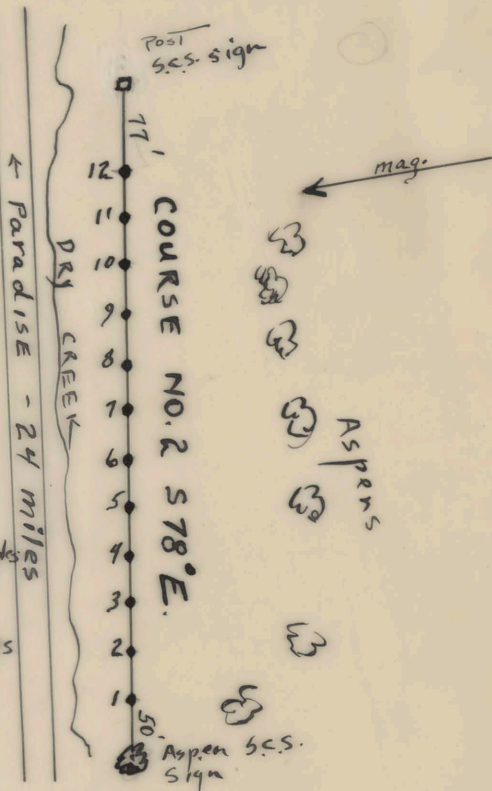 Post
s.c.s. sign
77'
mag.
12
11
10
9
8
7
6
5
4
3
2
1
COURSE NO. 2 S 78° E.
Aspens
DRY CREEK
← Paradise - 24 miles
s
50'
Aspen s.c.s.
Sign